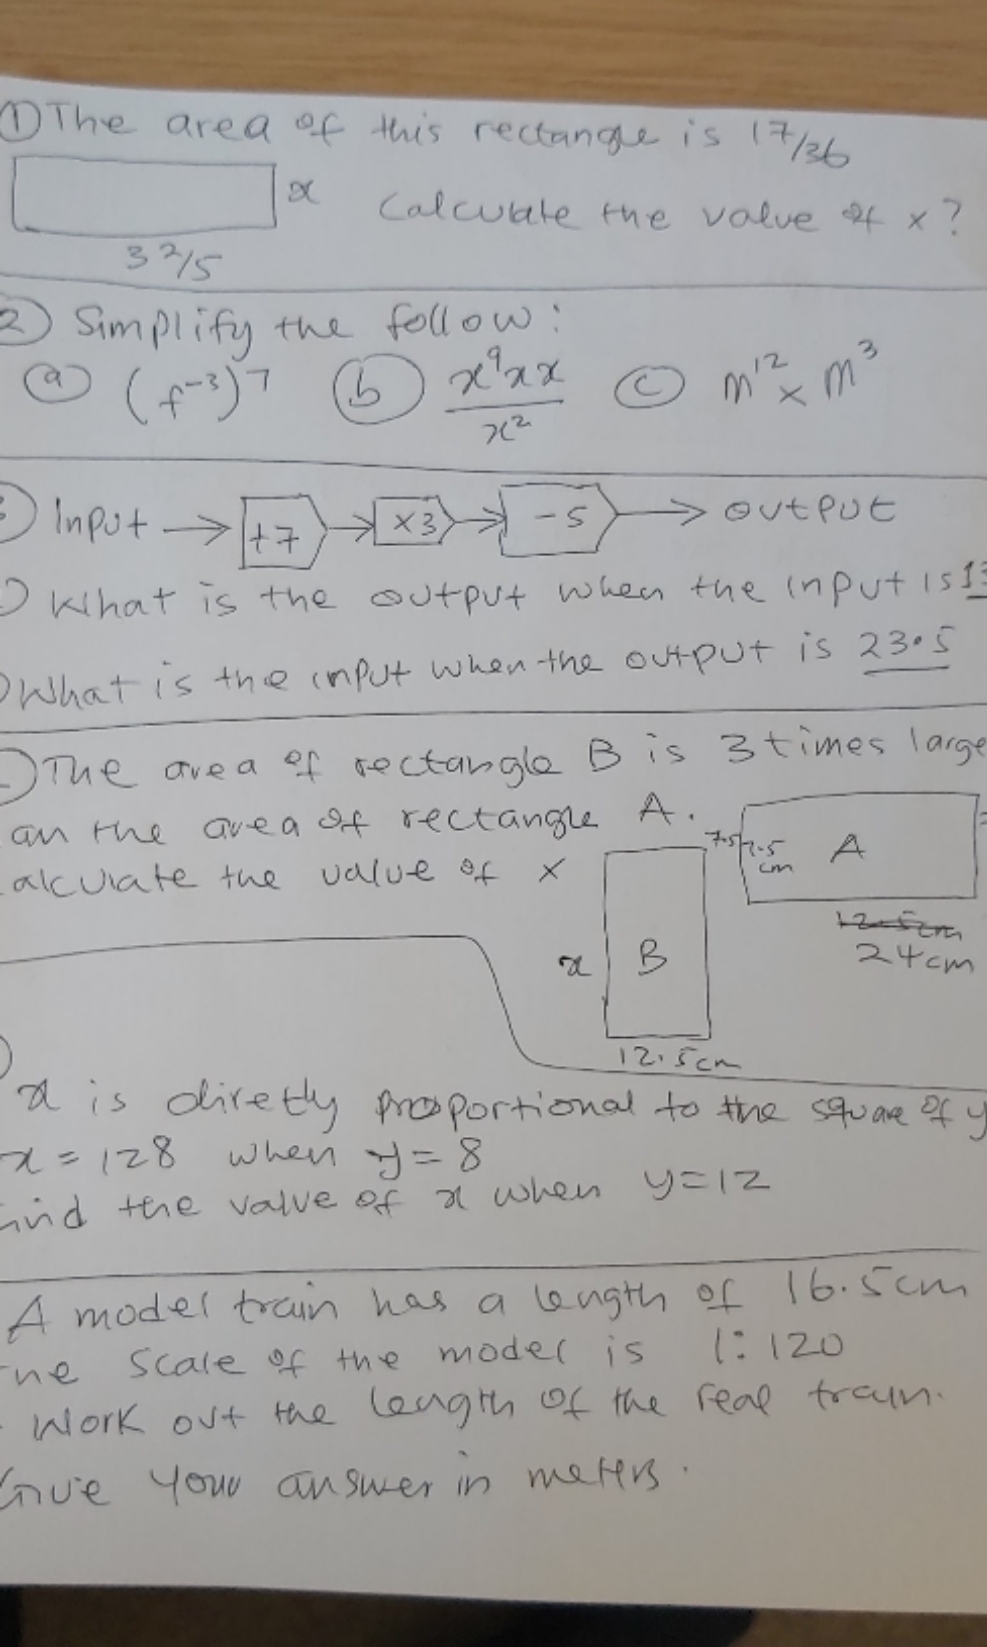 ① The area of this rectangle is 17/36
x Calculate the value of x?
3 2/5
2) Simplify the follow:
ⓐ (f⁻³)⁷ ⓑ x⁹xx/x² ⓒ m¹² x m³
Input → +7 → x3 → -5 → output
What is the output when the input is 13
What is the input when the output is 23.5
The area of rectangle B is 3 times large
an the area of rectangle A.
alculate the value of x
7.5 7.5 cm A
24cm
x B
12.5cm
x is diretly proportional to the square of y
x = 128 when y = 8
ind the value of x when y=12
A model train has a length of 16.5cm
he scale of the model is 1:120
Work out the length of the real train.
Give your answer in meters.